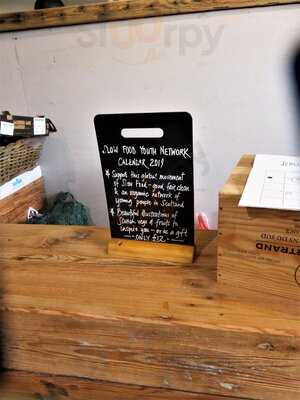 SLOW FOOD YOUTH NETWORK
CALENDAR 2019
* Support this global movement
of Slow Food - good, fair, clean
& an organic network of
young people in Scotland
* Beautiful illustrations of
Scottish veg & fruits to
inspire you - or as a gift
- ONLY £12 -
RTRAND
NS DU SUD
sluurpy